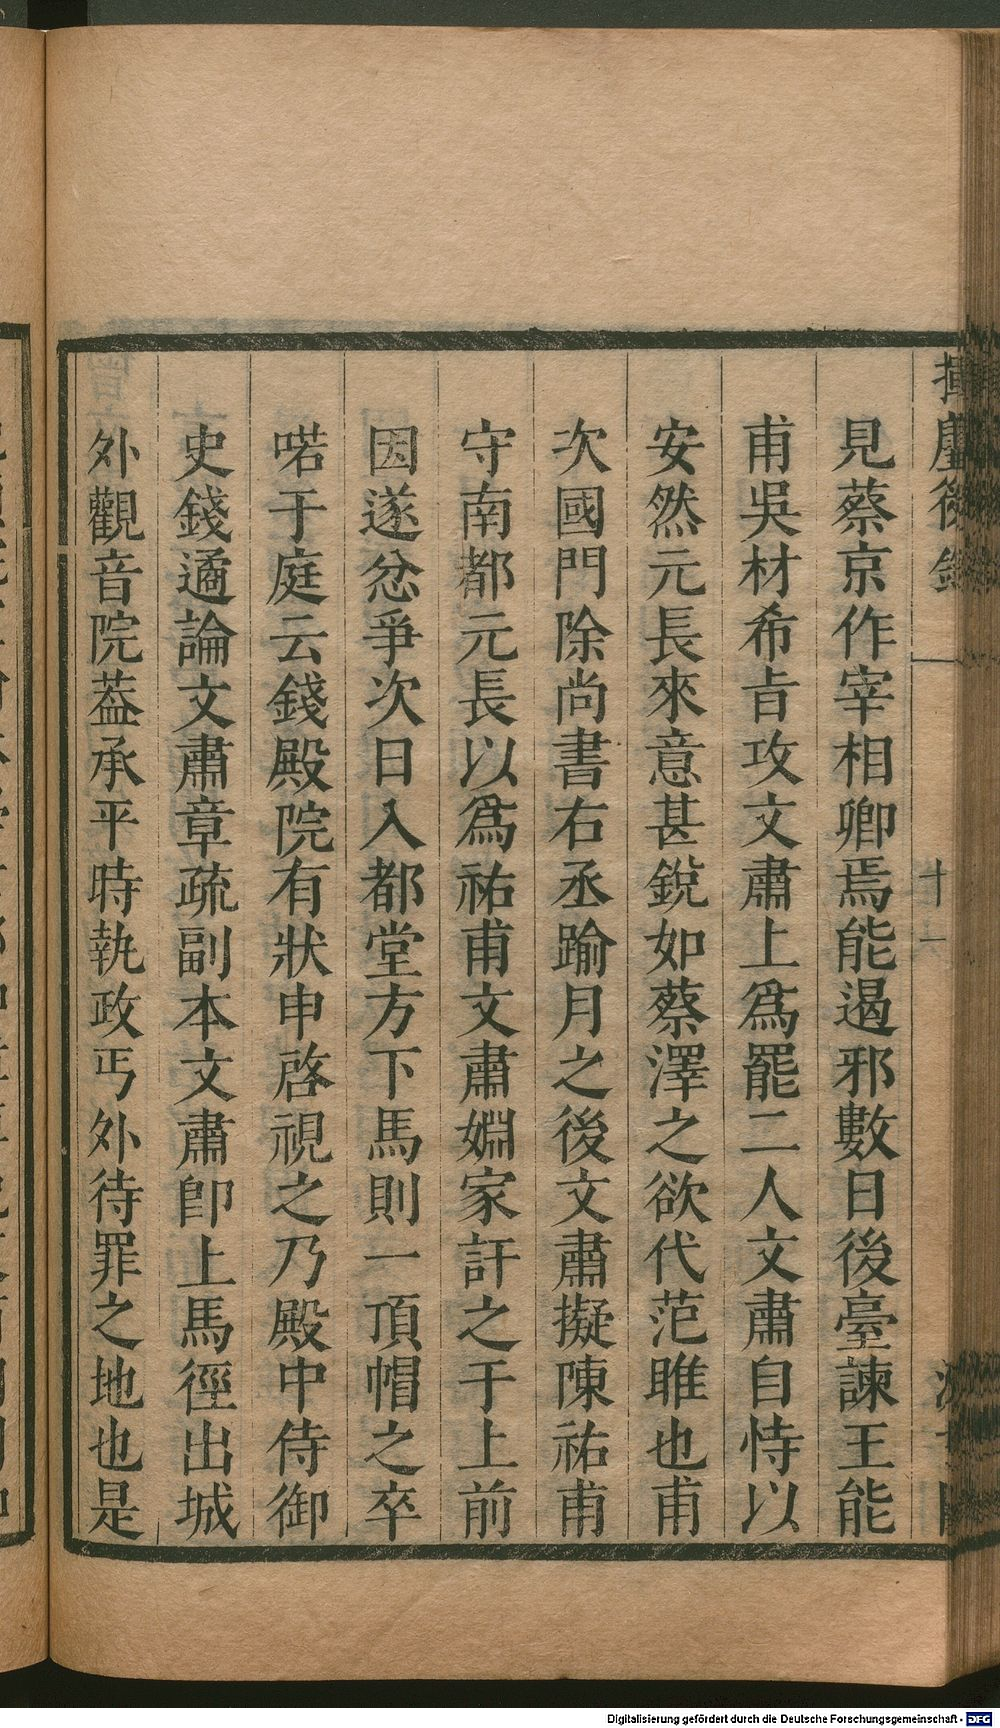 揮麈後錄
十一
見蔡京作宰相卿焉能遏邪數日後臺諫王能
甫吳材希㫖攻文肅上爲罷二人文肅自恃以
安然元長來意甚銳如蔡澤之欲代范雎也甫
次國門除尚書右丞踰月之後文肅擬陳祐甫
守南都元長以爲祐甫文肅婣家訐之于上前
因遂忿爭次日入都堂方下馬則一頂帽之卒
喏于庭云錢殿院有狀申啓視之乃殿中侍御
史錢遹論文肅章疏副本文肅卽上馬徑出城
外觀音院葢承平時執政丐外待罪之地也是
Digitalisierung gefördert durch die Deutsche Forschungsgemeinschaft - DFG